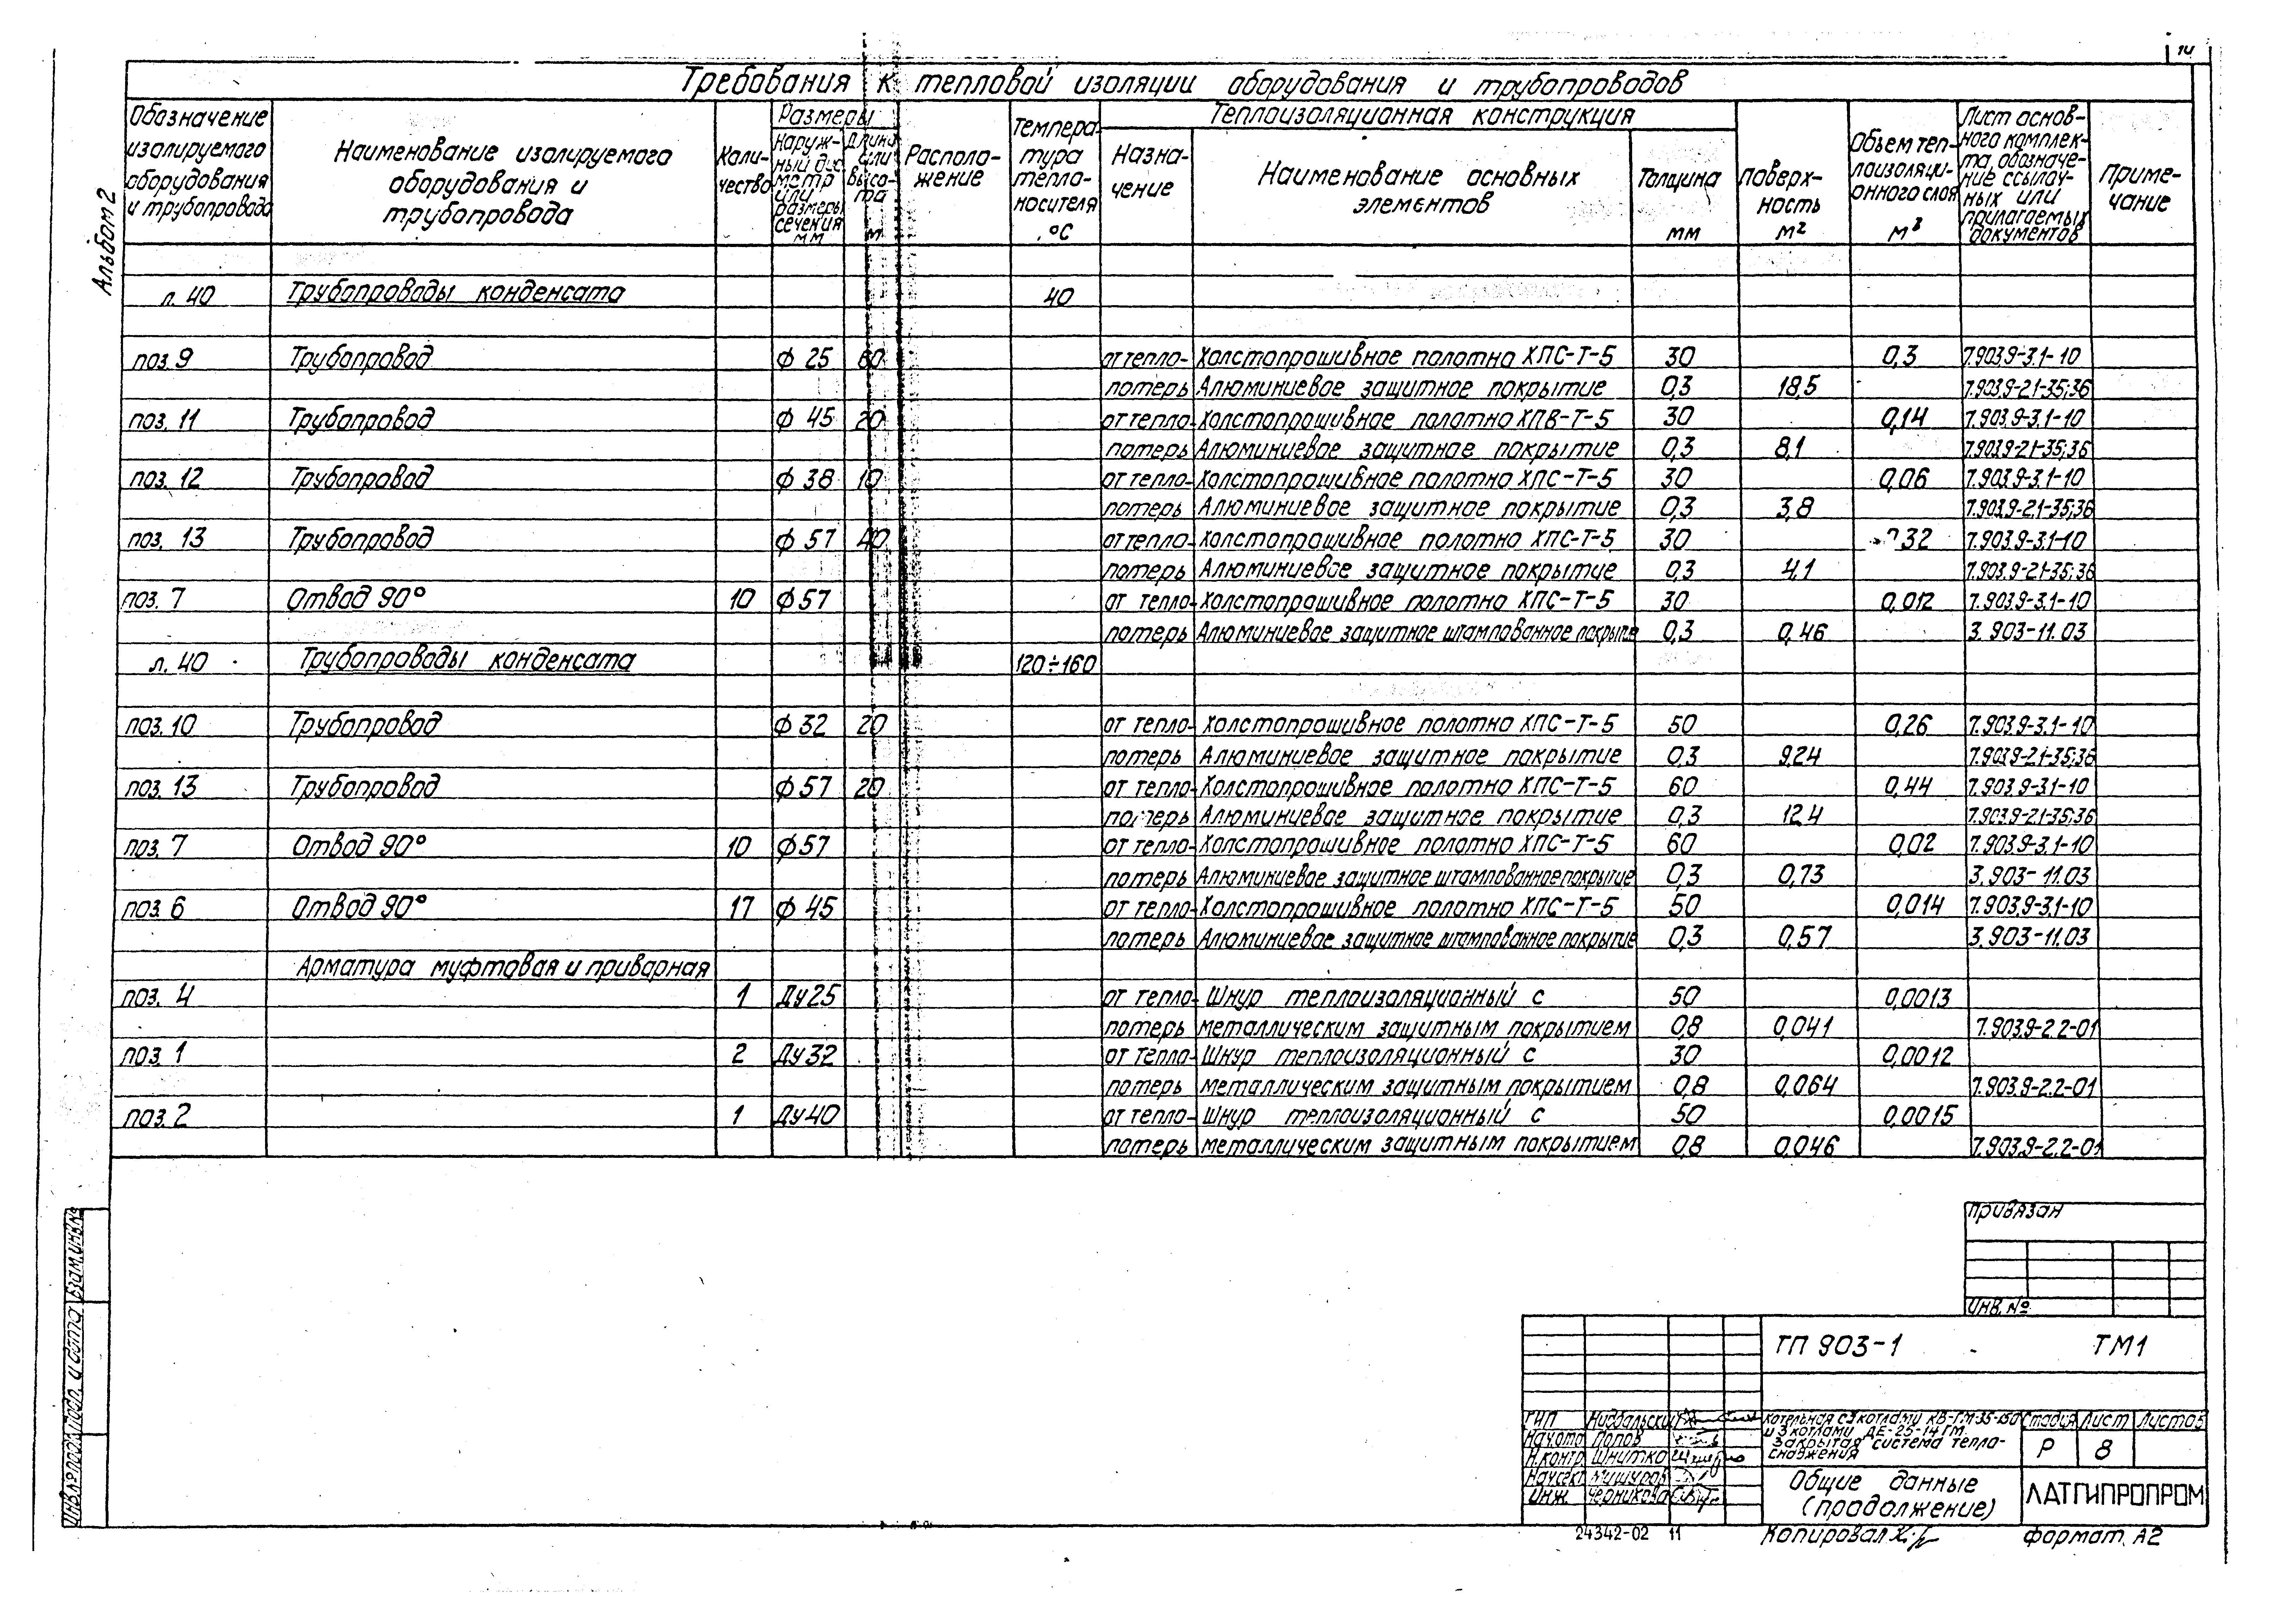 14
Альбом 2
Требования к тепловой изоляции оборудования и трубопроводов
Обозначение изолируемого оборудования и трубопровода
Наименование изолируемого оборудования и трубопровода
Коли-чество
Размеры
Наруж-ный диаметр или размеры сечения мм
Длина или высо-та м
Располо-жение
Темпера-тура тепло-носителя °С
Теплоизоляционная конструкция
Назна-чение
Наименование основных элементов
Толщина мм
Поверх-ность м²
Объем теп-лоизоляци-онного слоя м³
Лист основ-ного комплек-та, обозначе-ние ссылоч-ных или прилагаемых документов
Приме-чание
л. 40 Трубопроводы конденсата 40
поз. 9 Трубопровод ф 25 60 от тепло- Холстопрошивное полотно ХПС-Т-5 30 0,3 7.903.9-3.1-10
потерь Алюминиевое защитное покрытие 0,3 18,5 7.903.9-2.1-35;36
поз. 11 Трубопровод ф 45 20 от тепло- Холстопрошивное полотно ХПВ-Т-5 30 0,14 7.903.9-3.1-10
потерь Алюминиевое защитное покрытие 0,3 8,1 7.903.9-2.1-35;36
поз. 12 Трубопровод ф 38 10 от тепло- Холстопрошивное полотно ХПС-Т-5 30 0,06 7.903.9-3.1-10
потерь Алюминиевое защитное покрытие 0,3 3,8 7.903.9-2.1-35;36
поз. 13 Трубопровод ф 57 40 от тепло- Холстопрошивное полотно ХПС-Т-5 30 32 7.903.9-3.1-10
потерь Алюминиевое защитное покрытие 0,3 4,1 7.903.9-2.1-35;36
поз. 7 Отвод 90° 10 ф 57 от тепло- Холстопрошивное полотно ХПС-Т-5 30 0,012 7.903.9-3.1-10
потерь Алюминиевое защитное штампованное покрытие 0,3 0,46 3.903-11.03
л. 40 Трубопроводы конденсата 120÷160
поз. 10 Трубопровод ф 32 20 от тепло- Холстопрошивное полотно ХПС-Т-5 50 0,26 7.903.9-3.1-10
потерь Алюминиевое защитное покрытие 0,3 9,24 7.903.9-2.1-35;36
поз. 13 Трубопровод ф 57 20 от тепло- Холстопрошивное полотно ХПС-Т-5 60 0,44 7.903.9-3.1-10
потерь Алюминиевое защитное покрытие 0,3 12,4 7.903.9-2.1-35;36
поз. 7 Отвод 90° 10 ф 57 от тепло- Холстопрошивное полотно ХПС-Т-5 60 0,02 7.903.9-3.1-10
потерь Алюминиевое защитное штампованное покрытие 0,3 0,73 3.903-11.03
поз. 6 Отвод 90° 17 ф 45 от тепло- Холстопрошивное полотно ХПС-Т-5 50 0,014 7.903.9-3.1-10
потерь Алюминиевое защитное штампованное покрытие 0,3 0,57 3.903-11.03
Арматура муфтовая и приварная
поз. 4 1 Ду 25 от тепло- Шнур теплоизоляционный с 50 0,0013
потерь металлическим защитным покрытием 0,8 0,041 7.903.9-2.2-01
поз. 1 2 Ду 32 от тепло- Шнур теплоизоляционный с 30 0,0012
потерь металлическим защитным покрытием 0,8 0,064 7.903.9-2.2-01
поз. 2 1 Ду 40 от тепло- Шнур теплоизоляционный с 50 0,0015
потерь металлическим защитным покрытием 0,8 0,046 7.903.9-2.2-01
Привязан
Инв. №
Взам. инв. №
Подп. и дата
Инв. № подл.
ТП 903-1 - ТМ1
ГИП
Нач. отд. Попов
Н. контр. Шнитко
Нач. сект.
Инж. Черникова
Котельная с 3 котлами КВ-ГМ-35-150
и 3 котлами ДЕ-25-14ГМ.
Закрытая система тепло-
снабжения
Стадия Лист Листов
Р 8
Общие данные
(продолжение)
ЛАТГИПРОПРОМ
24342-02 11
Копировал
Формат А2